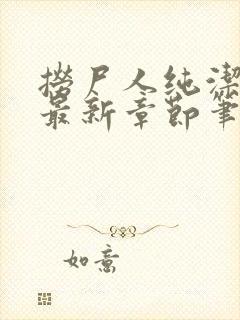 捞尸人纯洁
最新章节笔
如意